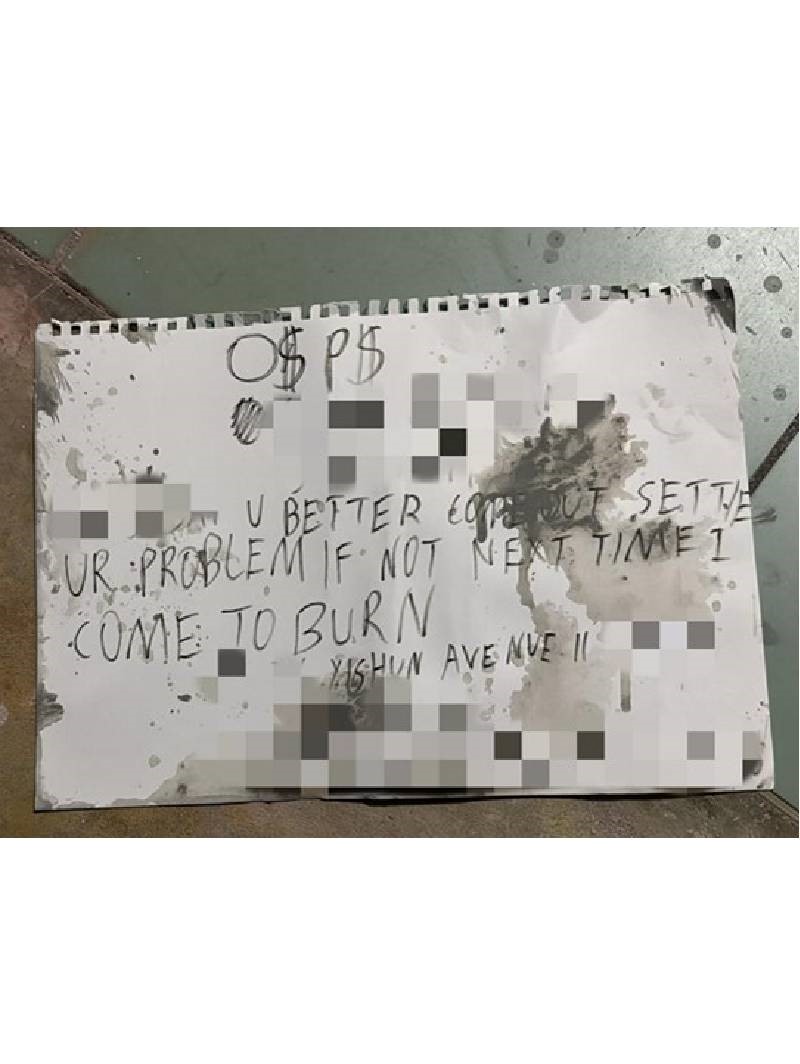 O$P$
U BETTER COME OUT SETTLE
UR PROBLEM IF NOT NEXT TIME I
COME TO BURN
YISHUN AVENUE 11